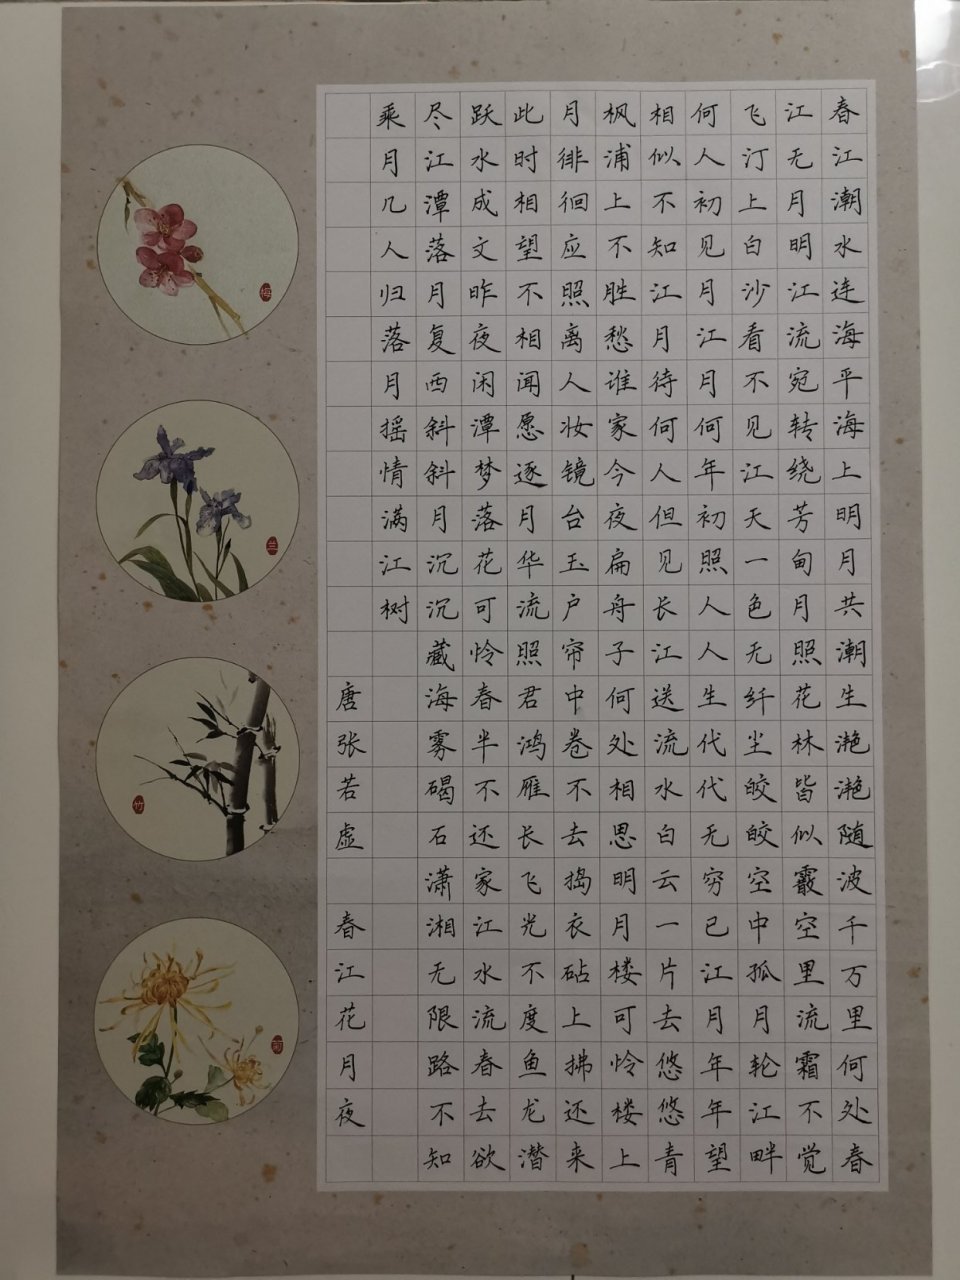 春江潮水连海平海上明月共潮生滟滟随波千万里何处春
江无月明江流宛转绕芳甸月照花林皆似霰空里流霜不觉
飞汀上白沙看不见江天一色无纤尘皎皎空中孤月轮江畔
何人初见月江月何年初照人人生代代无穷已江月年年望
相似不知江月待何人但见长江送流水白云一片去悠悠青
枫浦上不胜愁谁家今夜扁舟子何处相思明月楼可怜楼上
月徘徊应照离人妆镜台玉户帘中卷不去捣衣砧上拂还来
此时相望不相闻愿逐月华流照君鸿雁长飞光不度鱼龙潜
跃水成文昨夜闲潭梦落花可怜春半不还家江水流春去欲
尽江潭落月复西斜斜月沉沉藏海雾碣石潇湘无限路不知
乘月几人归落月摇情满江树
唐张若虚 春江花月夜
梅
兰
竹
菊